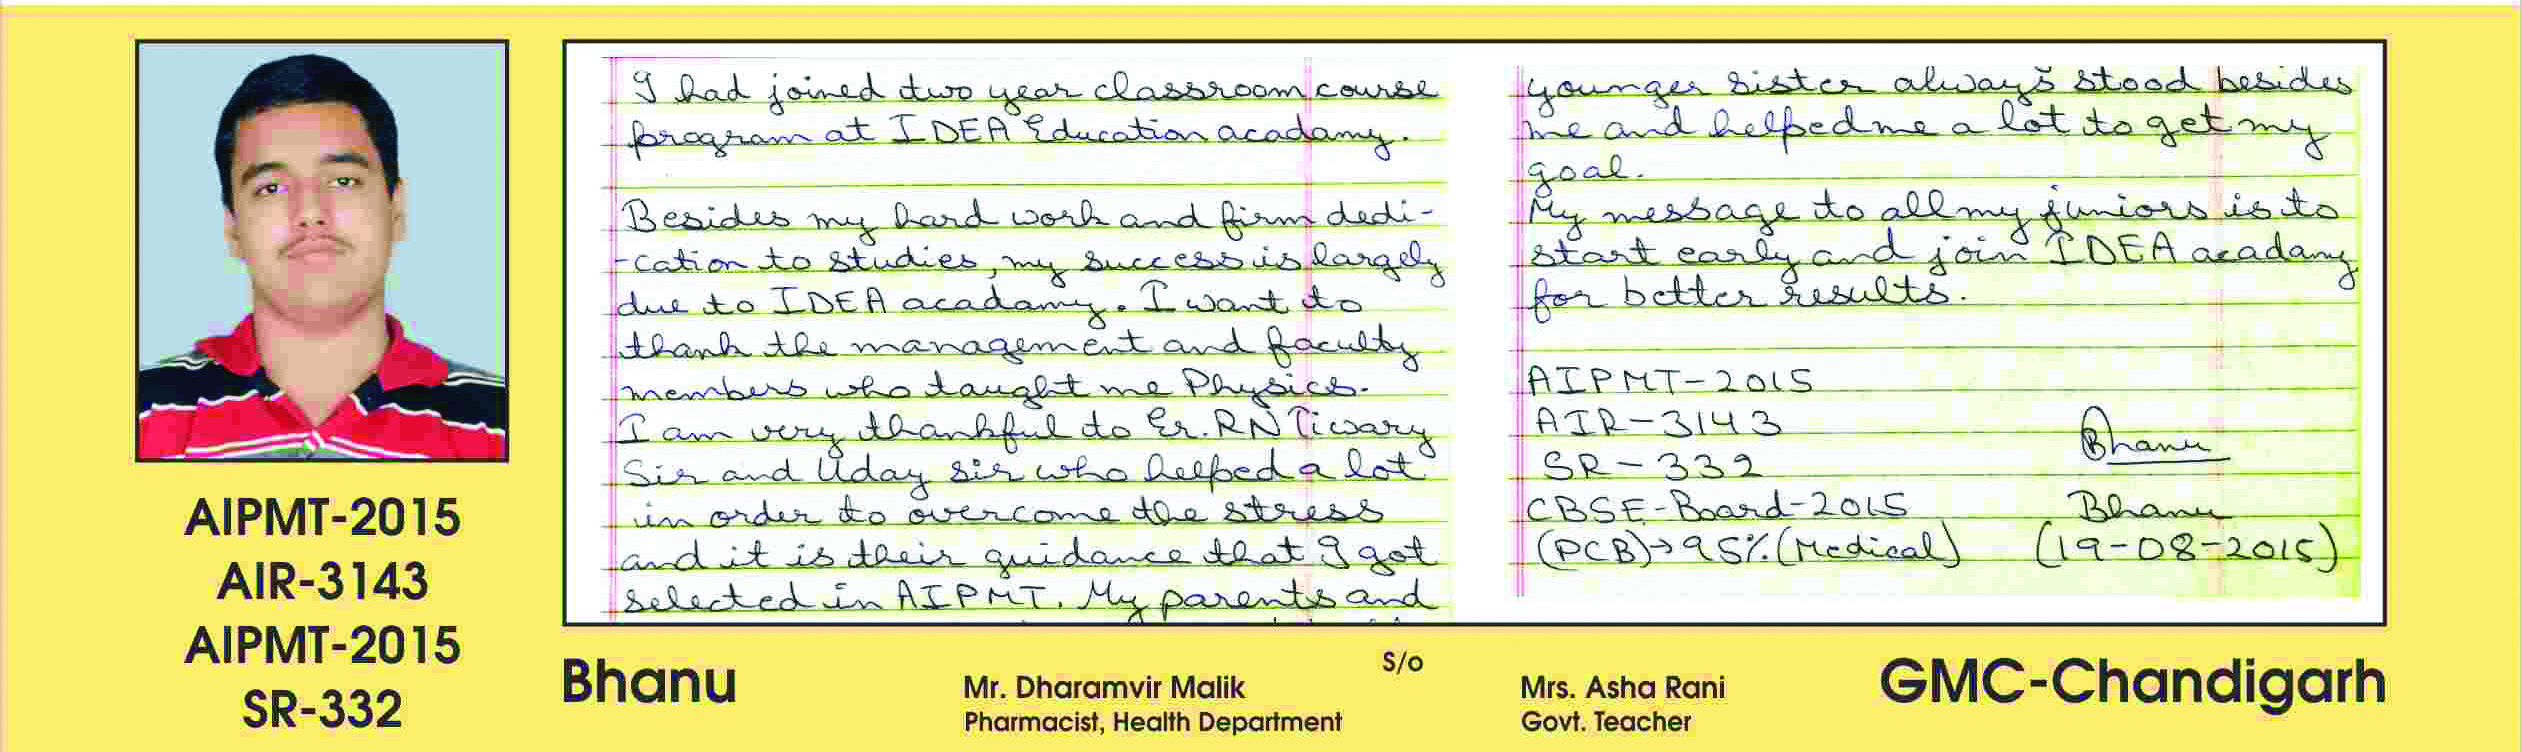 I had joined two year classroom course
program at IDEA Education acadamy.
Besides my hard work and firm dedi-
-cation to studies, my success is largely
due to IDEA acadamy. I want to
thank the management and faculty
members who taught me Physics.
I am very thankful to Er. RN Tiwary
Sir and Uday sir who helped a lot
in order to overcome the stress
and it is their guidance that I got
selected in AIPMT. My parents and
younger sister always stood besides
me and helped me a lot to get my
goal.
My message to all my juniors is to
start early and join IDEA acadamy
for better results.
AIPMT-2015
AIR-3143
SR-332
CBSE-Board-2015
(PCB)→95% (Medical)
Bhanu
Bhanu
(19-08-2015)
AIPMT-2015
AIR-3143
AIPMT-2015
SR-332
Bhanu
S/o
Mr. Dharamvir Malik
Pharmacist, Health Department
Mrs. Asha Rani
Govt. Teacher
GMC-Chandigarh